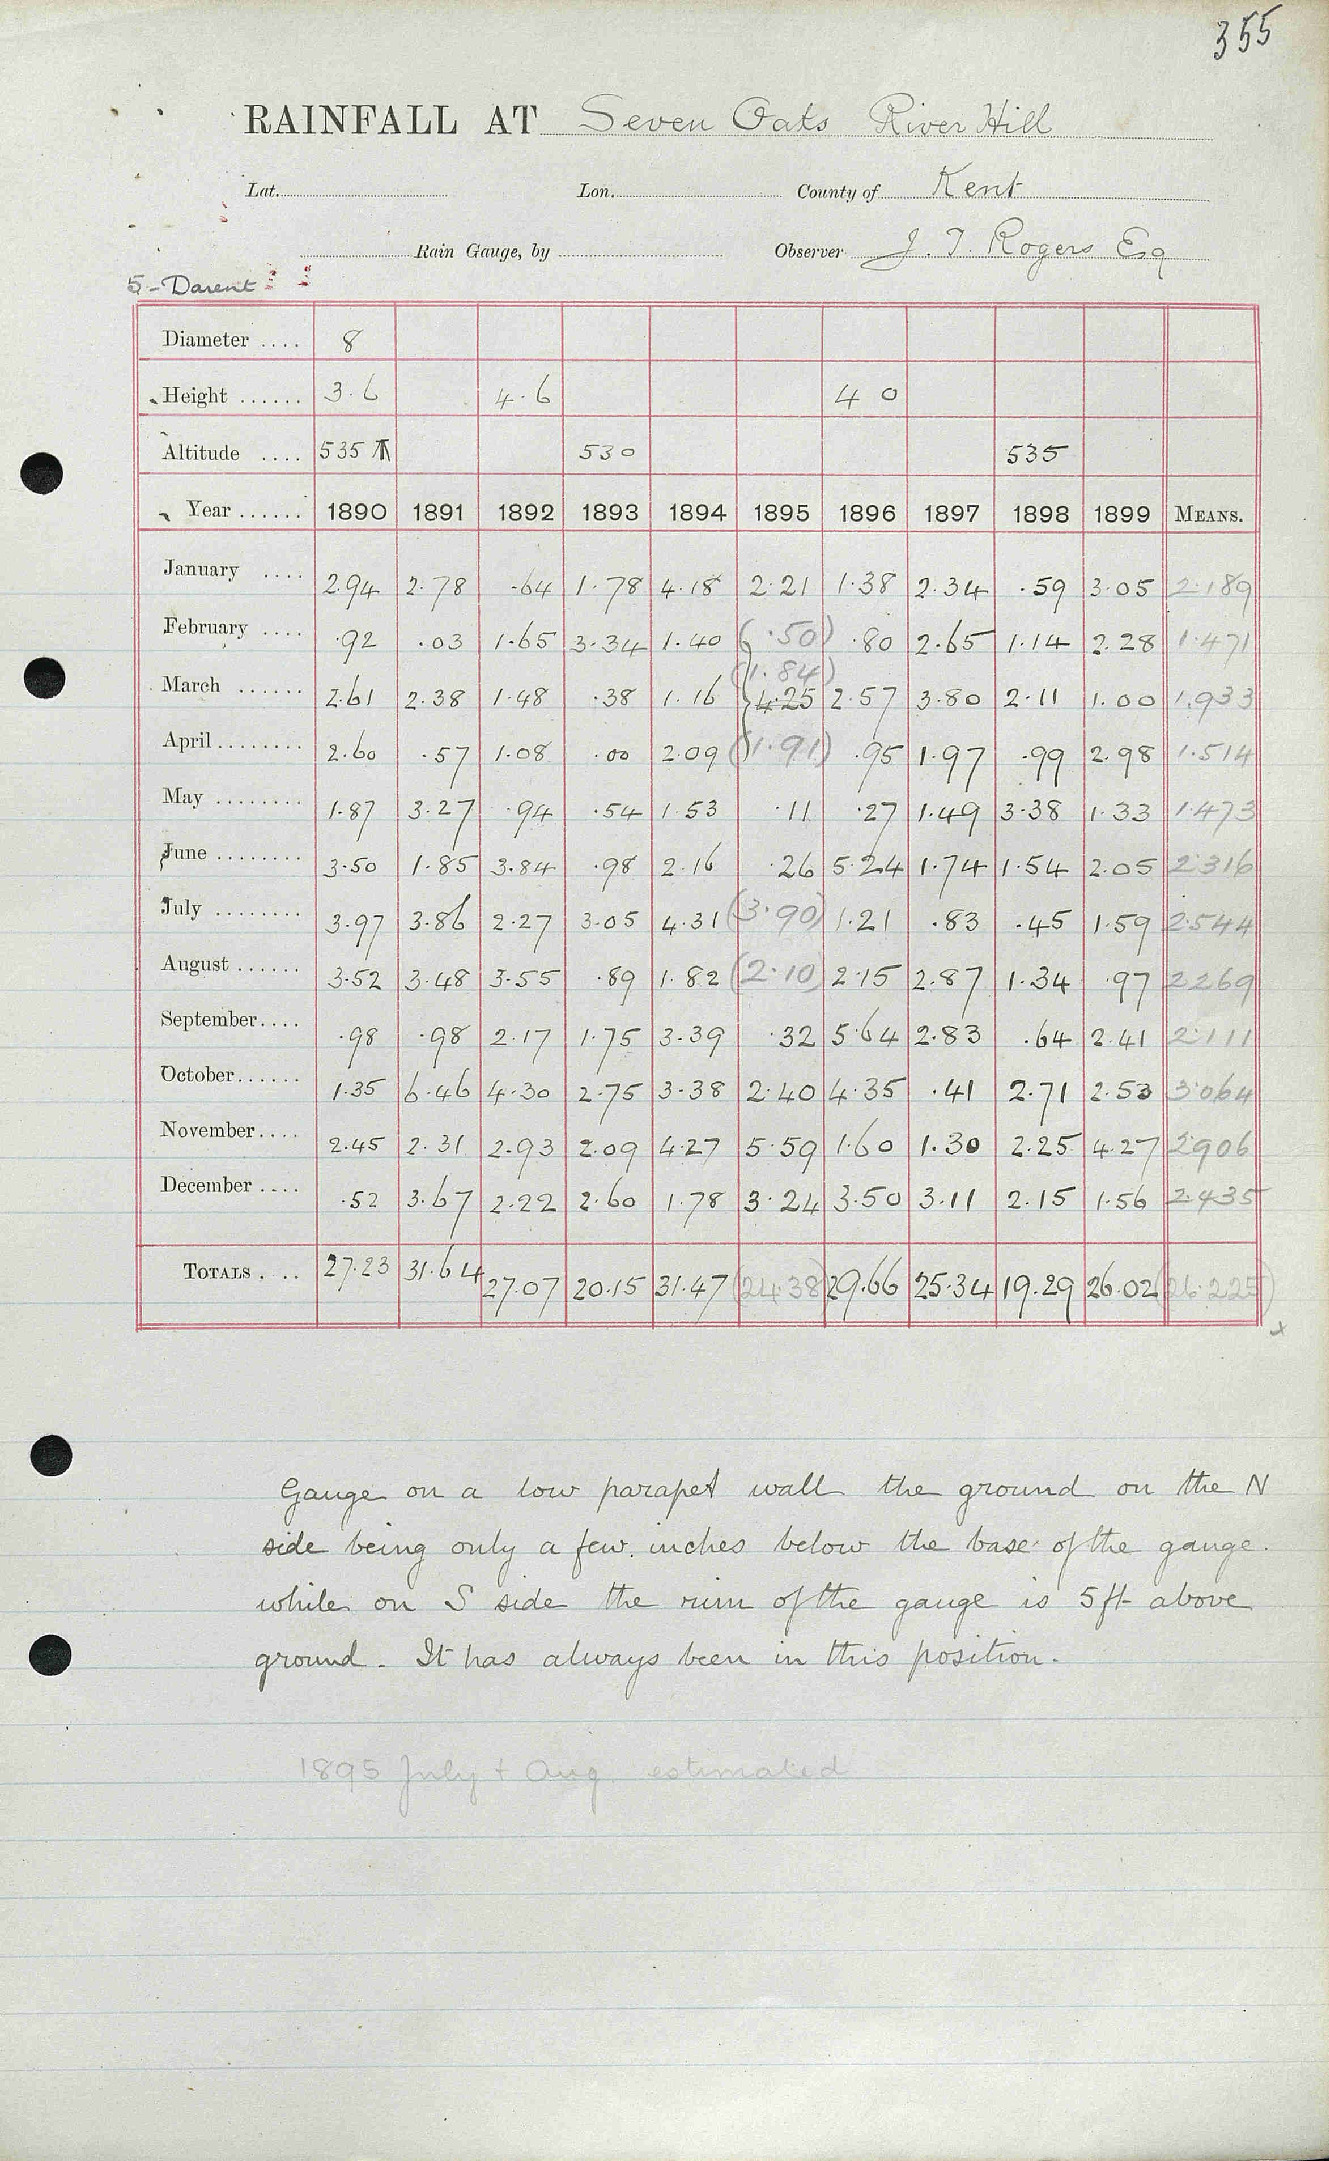 355
RAINFALL AT Seven Oaks River Hill
Lat. Lon. County of Kent
Rain Gauge, by Observer J. T. Rogers Esq
5 - Darent
Diameter .... 8
Height ...... 3.6 4.6 4 0
Altitude .... 535 530 535
Year ...... 1890 1891 1892 1893 1894 1895 1896 1897 1898 1899 MEANS.
January .... 2.94 2.78 .64 1.78 4.18 2.21 1.38 2.34 .59 3.05 2.189
February .... .92 .03 1.65 3.34 1.40 (.50) .80 2.65 1.14 2.28 1.471
March ...... 2.61 2.38 1.48 .38 1.16 (1.84) 4.25 2.57 3.80 2.11 1.00 1.933
April ........ 2.60 .57 1.08 .00 2.09 (1.91) .95 1.97 .99 2.98 1.514
May ........ 1.87 3.27 .94 .54 1.53 .11 .27 1.49 3.38 1.33 1.473
June ........ 3.50 1.85 3.84 .98 2.16 .26 5.24 1.74 1.54 2.05 2.316
July ........ 3.97 3.86 2.27 3.05 4.31 (3.90) 1.21 .83 .45 1.59 2.544
August ...... 3.52 3.48 3.55 .89 1.82 (2.10) 2.15 2.87 1.34 .97 2.269
September .... .98 .98 2.17 1.75 3.39 .32 5.64 2.83 .64 2.41 2.111
October ...... 1.35 6.46 4.30 2.75 3.38 2.40 4.35 .41 2.71 2.53 3.064
November .... 2.45 2.31 2.93 2.09 4.27 5.59 1.60 1.30 2.25 4.27 2.906
December .... .52 3.67 2.22 2.60 1.78 3.24 3.50 3.11 2.15 1.56 2.435
TOTALS .... 27.23 31.64 27.07 20.15 31.47 (24.38) 29.66 25.34 19.29 26.02 (26.225)
x
Gauge on a low parapet wall the ground on the N
side being only a few inches below the base of the gauge.
while on S side the rim of the gauge is 5 ft above
ground. It has always been in this position.
1895 July + Aug. estimated